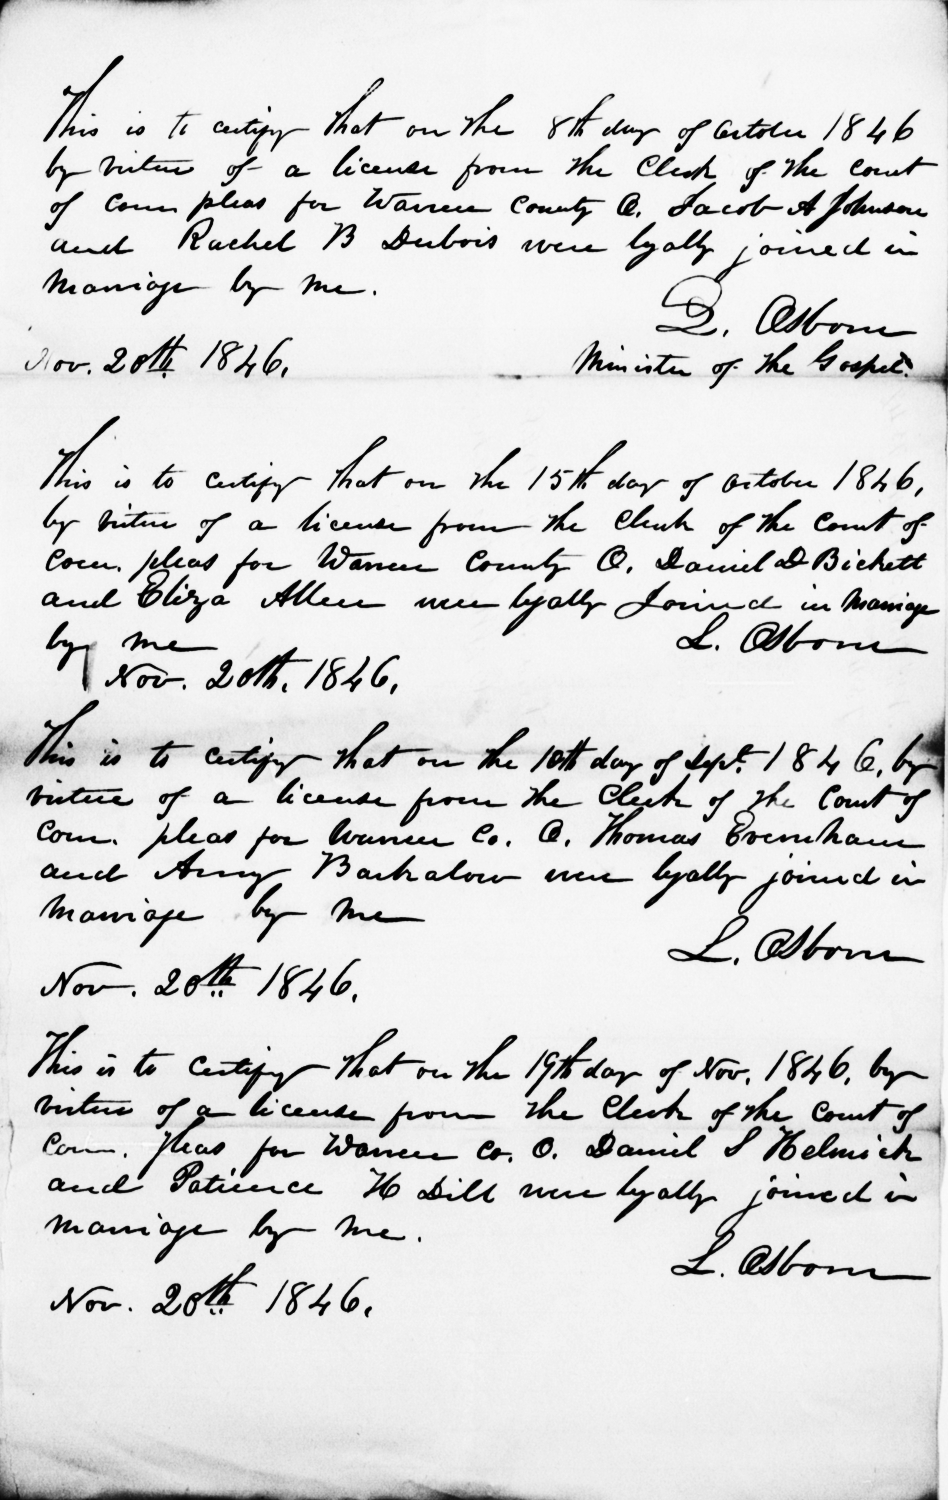 This is to certify that on the 8th day of October 1846
by virtue of a license from the Clerk of the Court
of Com pleas for Warren County O. Jacob A Johnson
and Rachel B Dubois were legally joined in
marriage by me.
L. Osborn
Nov. 20th. 1846. Minister of the Gospel.
This is to certify that on the 15th day of October 1846,
by virtue of a license from the Clerk of the Court of
Com. pleas for Warren County O. Daniel D Bickett
and Eliza Allen were legally Joined in marriage
by me L. Osborn
Nov. 20th. 1846.
This is to certify that on the 10th day of Sept. 1846, by
virtue of a license from the Clerk of the Court of
Com. pleas for Warren Co. O. Thomas Evernham
and Amy Barkalow were legally joined in
marriage by me
L. Osborn
Nov. 20th 1846.
This is to certify that on the 19th day of Nov. 1846, by
virtue of a license from the Clerk of the Court of
Com. pleas for Warren Co. O. Daniel S Helmick
and Patience H Dill were legally joined in
marriage by me.
L. Osborn
Nov. 20th 1846.